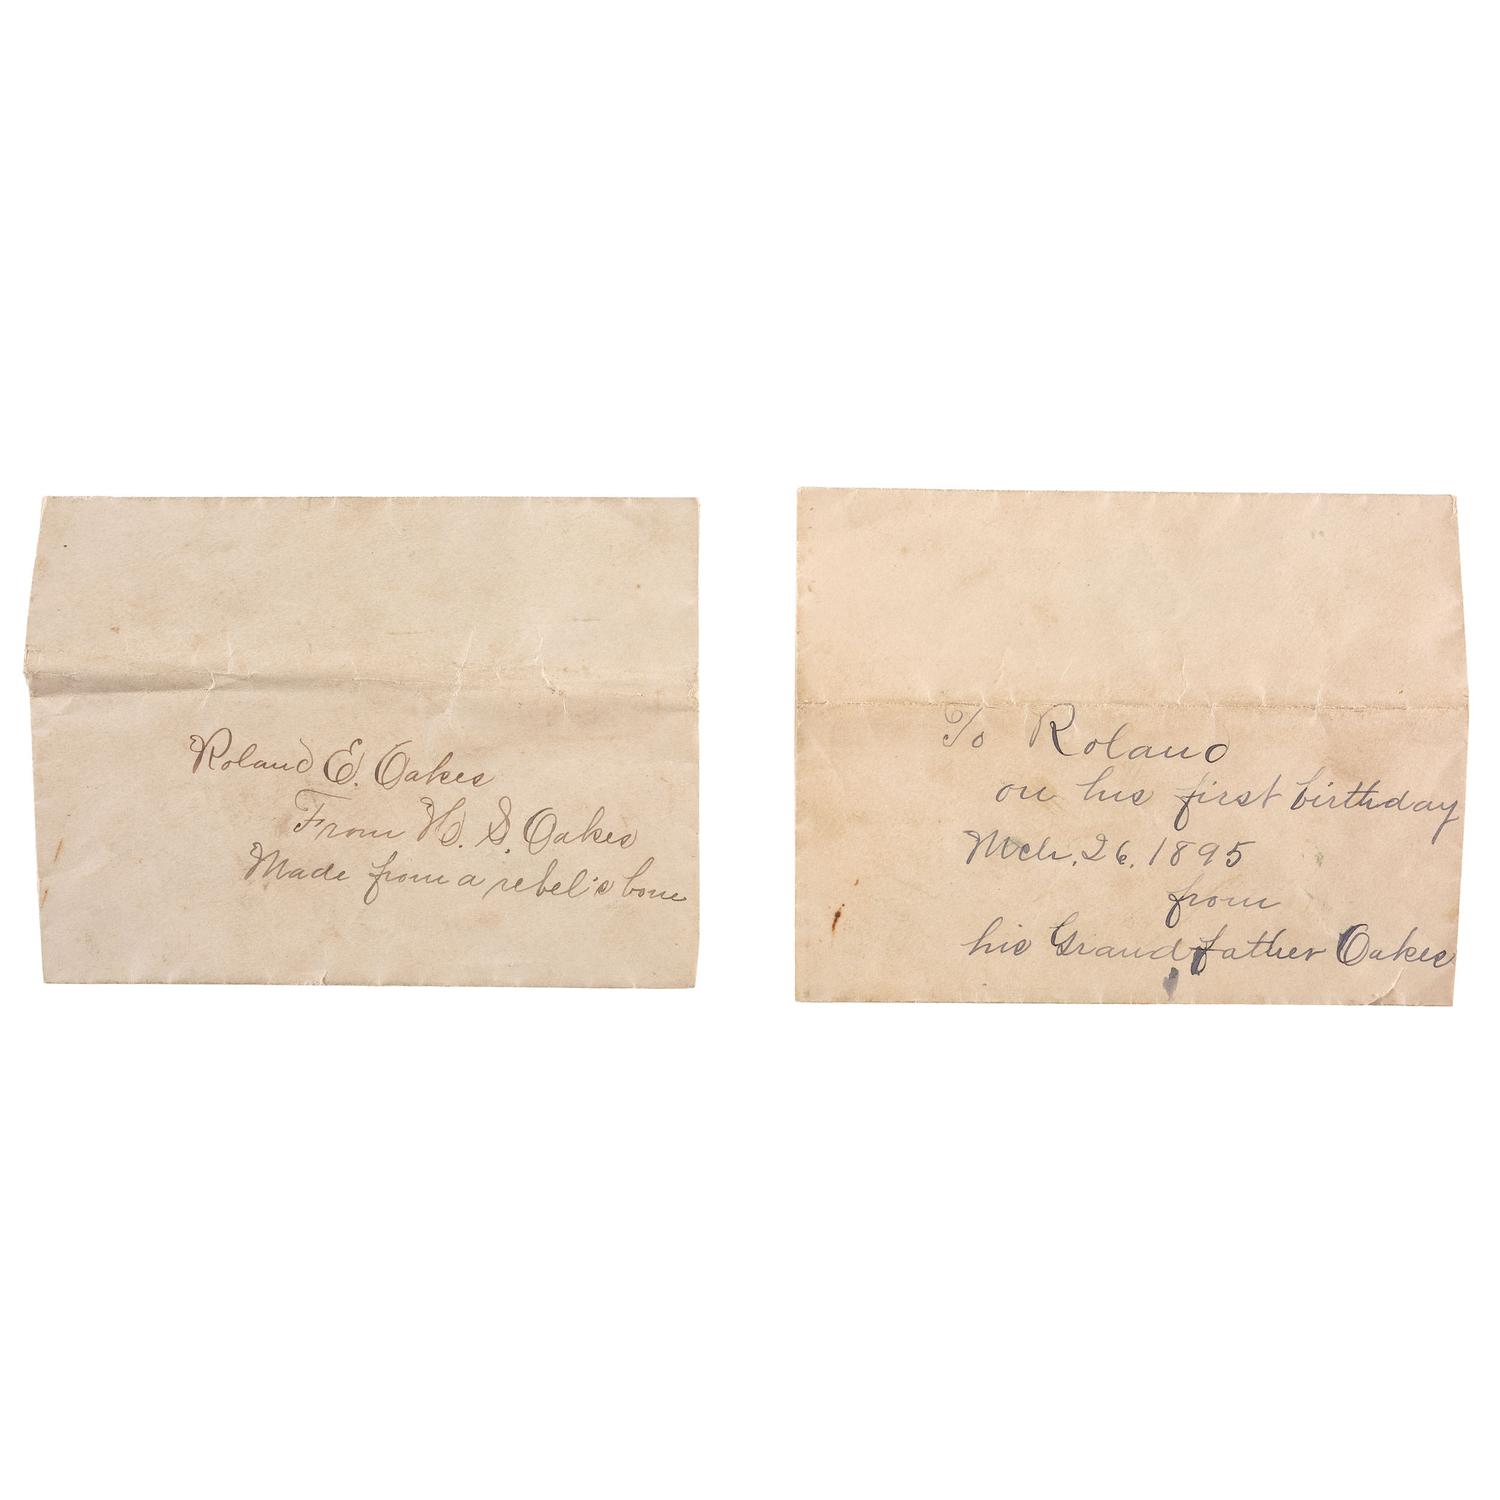 Roland E. Oakes
From H. S. Oakes
Made from a rebel's bone
To Roland
on his first birthday
Mch. 26. 1895
from
his Grandfather Oakes